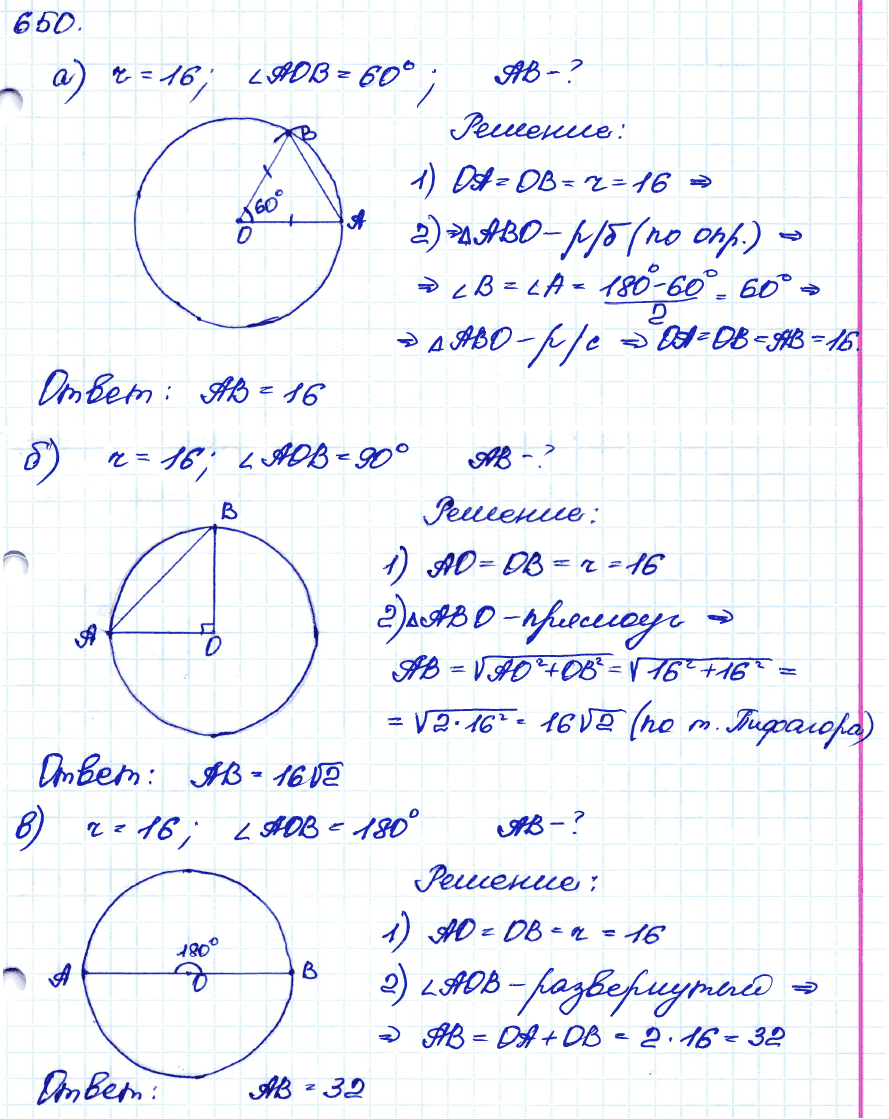 650.
а) r = 16; ∠AOB = 60°; AB - ?
B
60°
O
A
Решение:
1) OA = OB = r = 16 ⇒
2) ⇒ △ABO - р/б (по опр.) ⇒
⇒ ∠B = ∠A = (180° - 60°)/2 = 60° ⇒
⇒ △ABO - р/с ⇒ OA = OB = AB = 16.
Ответ: AB = 16
б) r = 16; ∠AOB = 90° AB - ?
B
A
O
Решение:
1) AO = OB = r = 16
2) △ABO - прямоуг ⇒
AB = √(AO² + OB²) = √(16² + 16²) =
= √(2 · 16²) = 16√2 (по т. Пифагора)
Ответ: AB = 16√2
в) r = 16; ∠AOB = 180° AB - ?
180°
A
O
B
Решение:
1) AO = OB = r = 16
2) ∠AOB - развернутый ⇒
⇒ AB = OA + OB = 2 · 16 = 32
Ответ: AB = 32